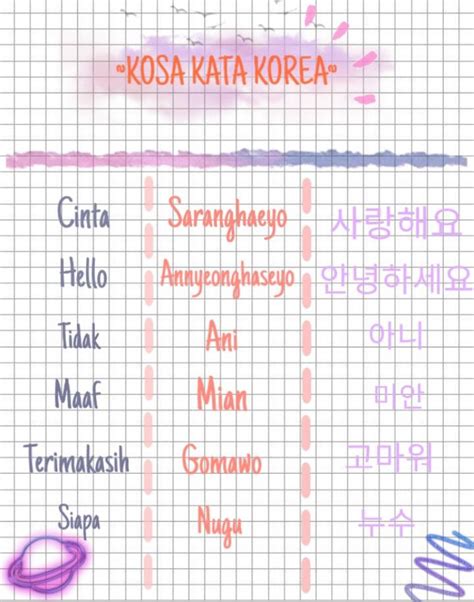 ~KOSA KATA KOREA~
Cinta Saranghaeyo 사랑해요
Hello Annyeonghaseyo 안녕하세요
Tidak Ani 아니
Maaf Mian 미안
Terimakasih Gomawo 고마워
Siapa Nugu 누수